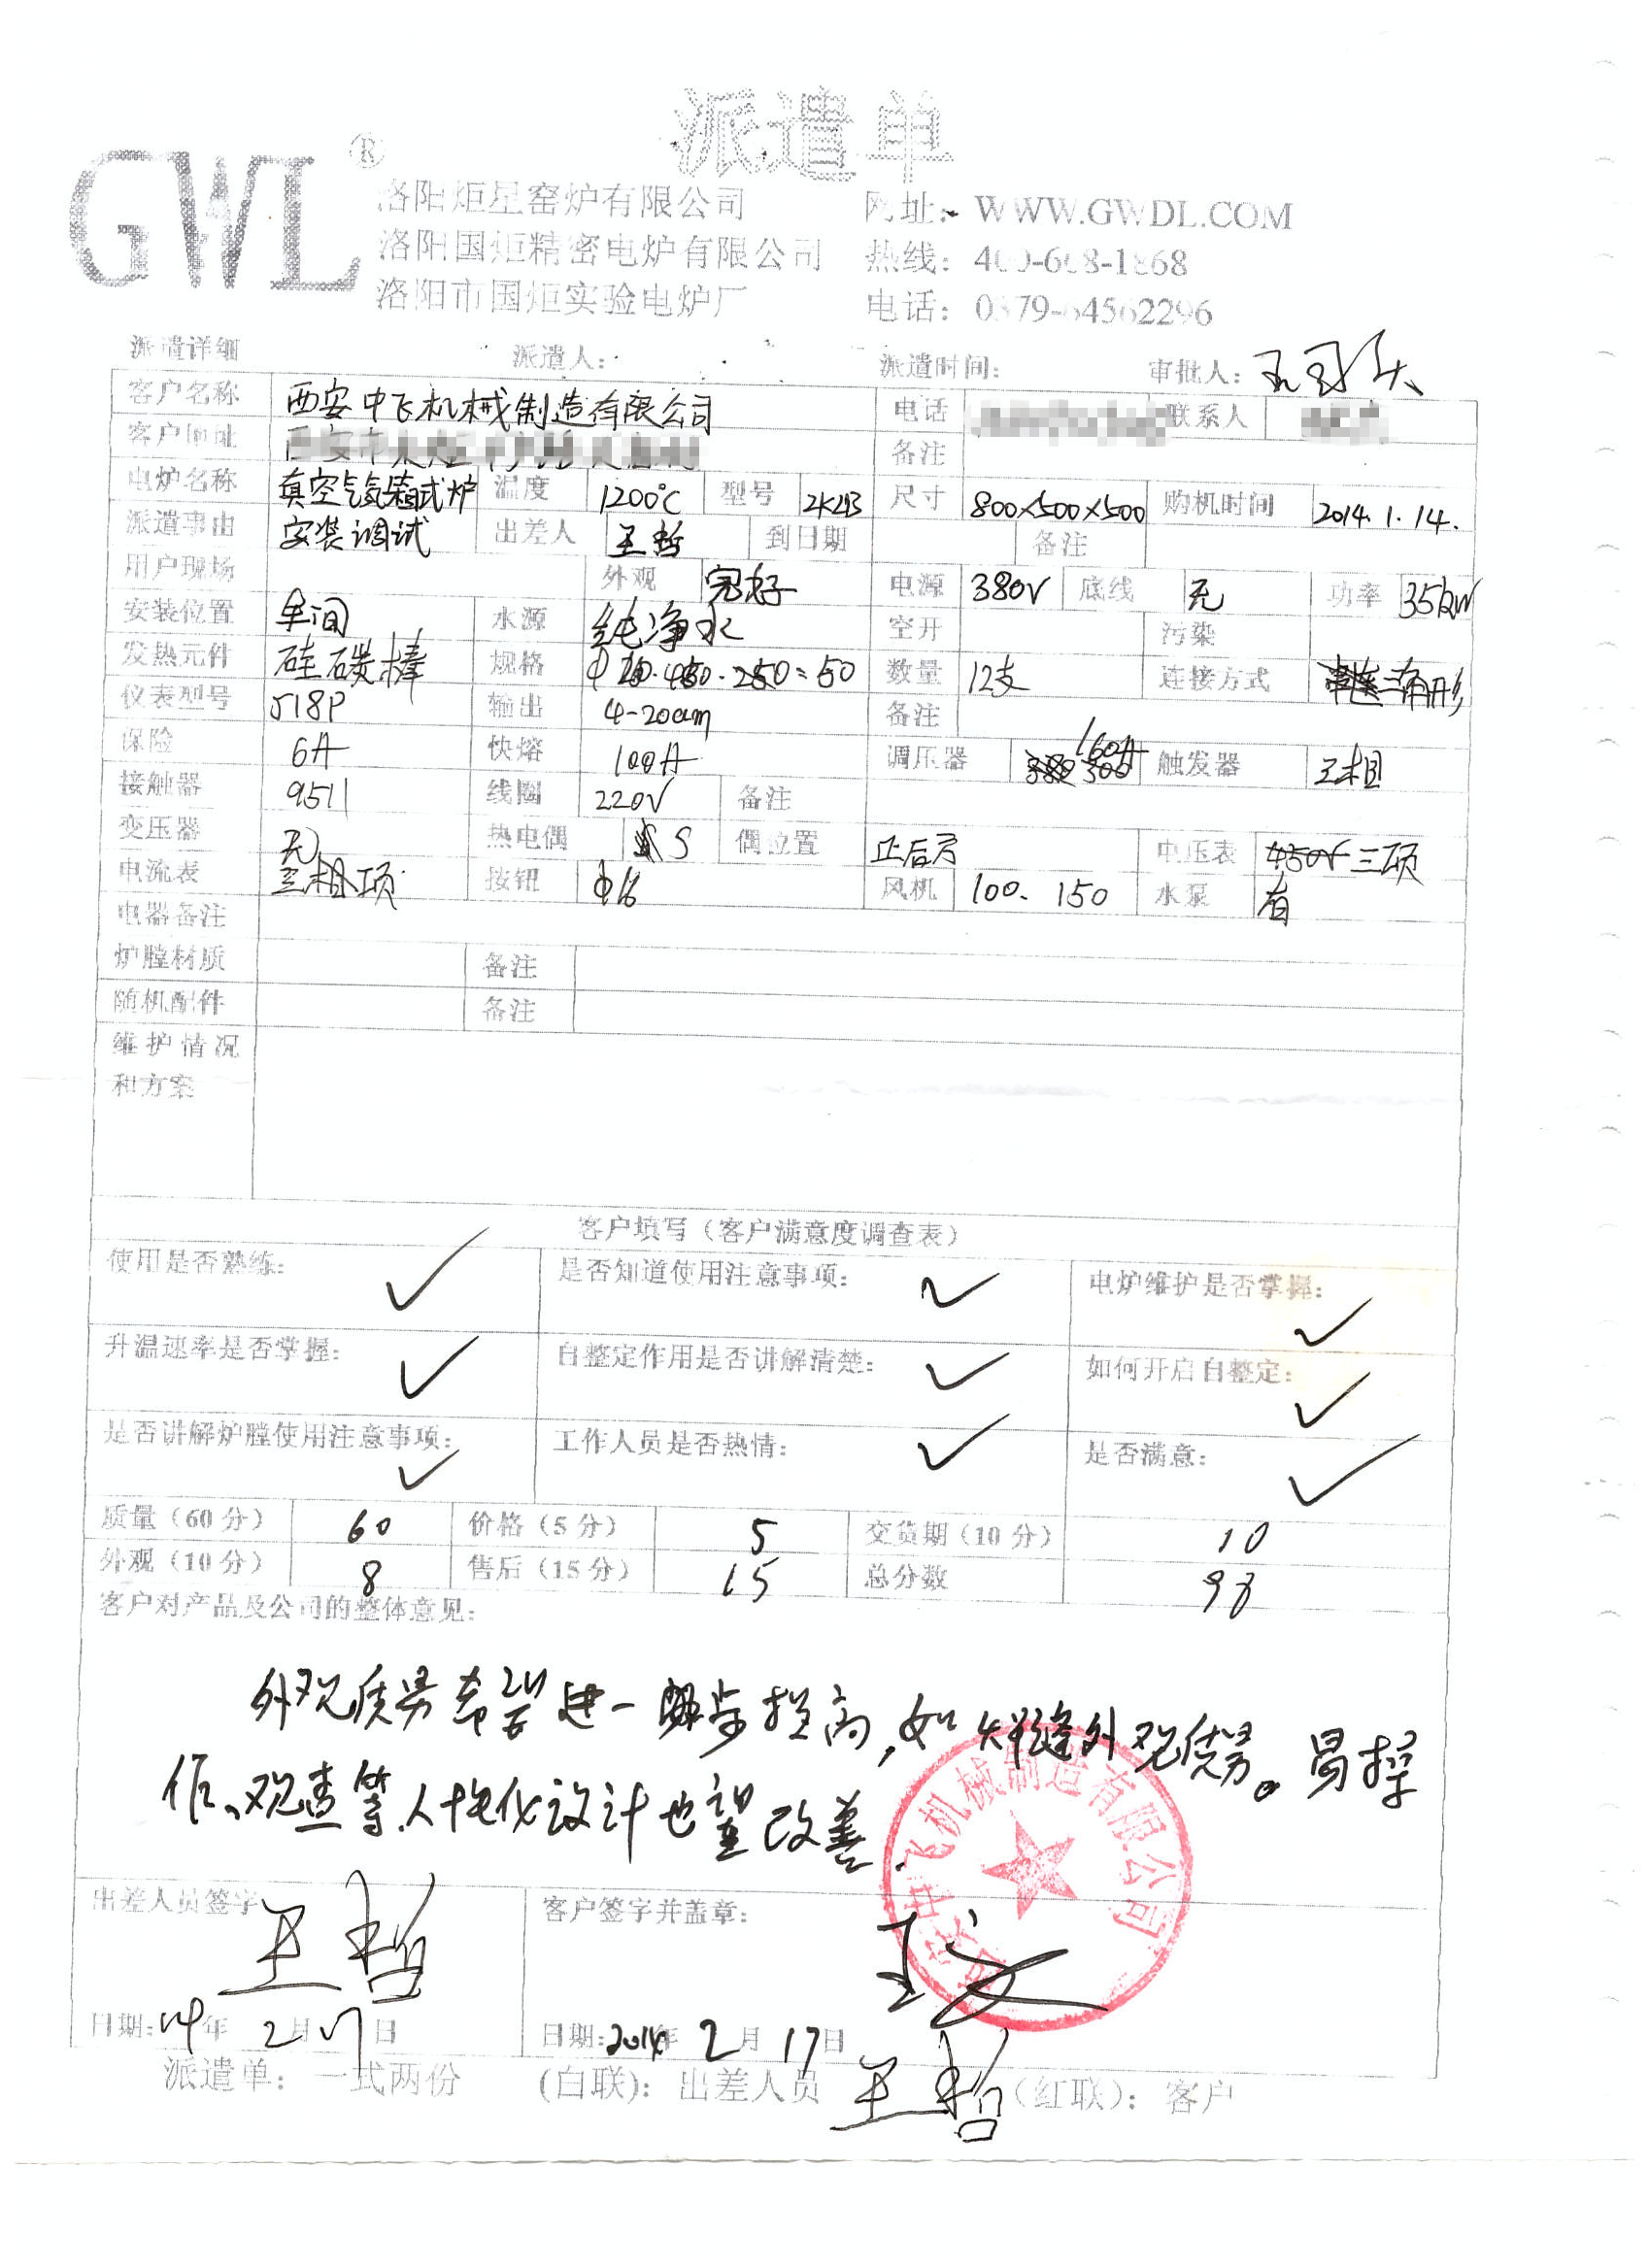 派遣单
GWL®
洛阳炬星窑炉有限公司 网址: WWW.GWDL.COM
洛阳国炬精密电炉有限公司 热线: 400-608-1868
洛阳市国炬实验电炉厂 电话: 0379-64562296
派遣详细 派遣人: 派遣时间: 审批人:
客户名称 西安中飞机械制造有限公司 电话 联系人
客户地址 备注
电炉名称 真空气氛箱式炉 温度 1200℃ 型号 尺寸 800×500×500 购机时间 2014.1.14.
派遣事由 安装调试 出差人 王哲 到日期 备注
用户现场 外观 完好 电源 380V 底线 无 功率 35kW
安装位置 车间 水源 纯净水 空开 污染
发热元件 硅碳棒 规格 数量 12支 连接方式 三角形
仪表型号 518P 输出 4-20am 备注
保险 6A 快熔 100A 调压器 160A 触发器 三相
接触器 9511 线圈 220V 备注
变压器 无 热电偶 S 偶位置 正后方 电压表 三项
电流表 按钮 Φ16 风机 100. 150 水泵 有
电器备注
炉膛材质 备注
随机配件 备注
维护情况
和方案
客户填写（客户满意度调查表）
使用是否熟练: ✓ 是否知道使用注意事项: ✓ 电炉维护是否掌握: ✓
升温速率是否掌握: ✓ 自整定作用是否讲解清楚: ✓ 如何开启自整定: ✓
是否讲解炉膛使用注意事项: ✓ 工作人员是否热情: ✓ 是否满意: ✓
质量（60分） 60 价格（5分） 5 交货期（10分） 10
外观（10分） 8 售后（15分） 15 总分数 98
客户对产品及公司的整体意见:
外观质量希望进一步提高,如焊缝外观质量。易操
作、观查等人性化设计也望改善.
西安中飞机械制造有限公司
出差人员签字 王哲 客户签字并盖章: 王文
日期: 14年 2月17日 日期: 2014年 2月17日
派遣单: 一式两份 (白联): 出差人员 王哲 （红联）: 客户